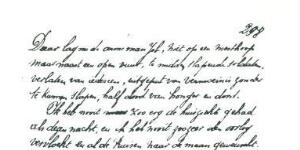 298
Daar lag nu de arme man Job, niet op een mesthoop
maar naast een open vuur, te midden slapende soldaten
verlaten van iedereen, uitgeput van vermoeienis zonder
te kunnen slapen, half dood van honger en dorst.
Ik heb nooit zoo erg de huizigheid gehad
als dezen nacht, en ik heb nooit zoo zeer den oorlog
vervloekt en al de Russen naar de maan gewenscht.